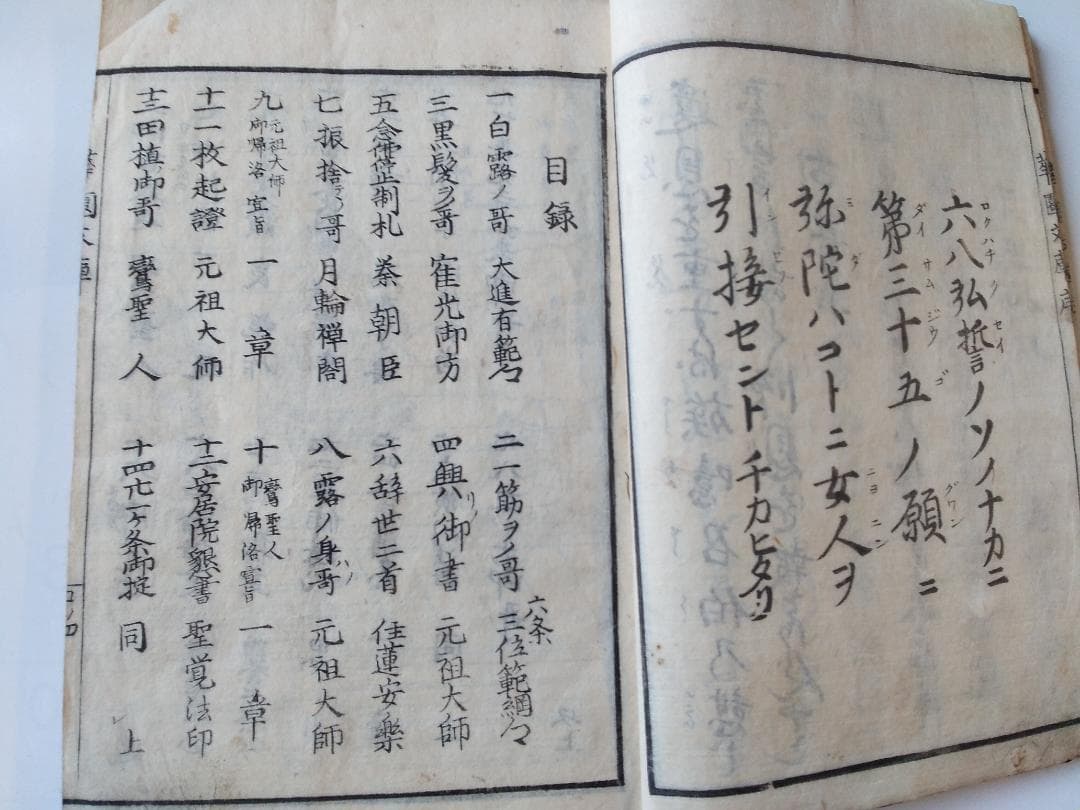 六八弘誓ノソノナカニ
第三十五ノ願ニ
弥陀ハコトニ女人ヲ
引接セントチカヒタリ
目録
一 白露ノ哥 大進有範
二 一筋ヲノ哥 六条三位範綱
三 黒髪ヲノ哥 寉光御方
四 興リノ御書 元祖大師
五 念佛停止制札 蔡朝臣
六 辞世二首 住蓮安楽
七 振捨テヽ哥 月輪禅閤
八 露ノ身ハノ哥 元祖大師
九 元祖大師御帰洛宣旨 一章
十 鸞聖人御帰洛宣旨 一章
十一 一枚起證 元祖大师
十二 安居院懇書 聖覚法印
十三 田植御哥 鸞聖人
十四 廿一ケ条御掟 同上